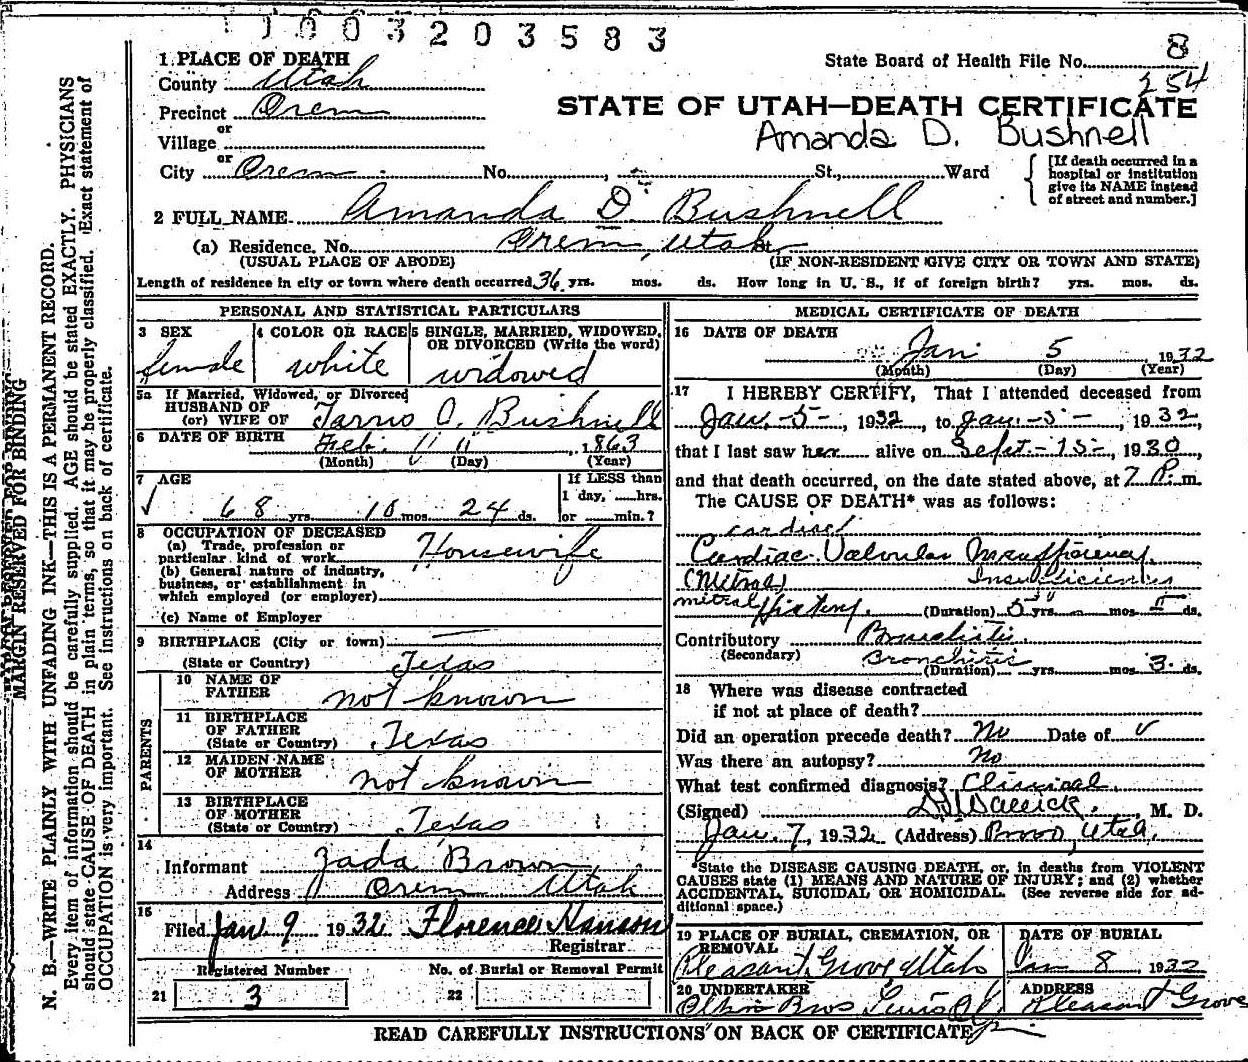 1003203583
1 PLACE OF DEATH
State Board of Health File No. 8
County Utah
254
Precinct Orem
STATE OF UTAH—DEATH CERTIFICATE
or
Village
Amanda D. Bushnell
or
City Orem No. St., Ward
[If death occurred in a
hospital or institution
give its NAME instead
of street and number.]
2 FULL NAME Amanda D. Bushnell
(a) Residence. No. Orem, Utah St.
(USUAL PLACE OF ABODE) (IF NON-RESIDENT GIVE CITY OR TOWN AND STATE)
Length of residence in city or town where death occurred 36 yrs. mos. ds. How long in U. S., if of foreign birth? yrs. mos. ds.
PERSONAL AND STATISTICAL PARTICULARS
3 SEX
female
4 COLOR OR RACE
white
5 SINGLE, MARRIED, WIDOWED,
OR DIVORCED (Write the word)
widowed
5a If Married, Widowed, or Divorced
HUSBAND OF
(or) WIFE OF O. Bushnell
6 DATE OF BIRTH Feb. 11 1863
(Month) (Day) (Year)
7 AGE
68 yrs. 10 mos. 24 ds.
If LESS than
1 day, hrs.
or min.?
8 OCCUPATION OF DECEASED
(a) Trade, profession or
particular kind of work Housewife
(b) General nature of industry,
business, or establishment in
which employed (or employer)
(c) Name of Employer
9 BIRTHPLACE (City or town)
(State or Country) Texas
PARENTS
10 NAME OF
FATHER not known
11 BIRTHPLACE
OF FATHER
(State or Country) Texas
12 MAIDEN NAME
OF MOTHER not known
13 BIRTHPLACE
OF MOTHER
(State or Country) Texas
14
Informant Zada Brown
Address Orem Utah
15
Filed Jan 9 1932 Florence Hanson
Registrar
Registered Number
No. of Burial or Removal Permit
21 3
22
MEDICAL CERTIFICATE OF DEATH
16 DATE OF DEATH
Jan 5 1932
(Month) (Day) (Year)
17 I HEREBY CERTIFY, That I attended deceased from
Jan. -5-, 1932 to Jan. -5-, 1932,
that I last saw her alive on Sept. -15-, 1930,
and that death occurred, on the date stated above, at 7 P. m.
The CAUSE OF DEATH* was as follows:
cardiac
Cardiac Valvular Insufficiency
(Mitral) Insufficiency
mitral (Duration) 5 yrs. mos. ds.
Contributory Bronchitis
(Secondary) Bronchitis
(Duration) yrs. mos. 3 ds.
18 Where was disease contracted
if not at place of death?
Did an operation precede death? No Date of
Was there an autopsy? No
What test confirmed diagnosis? Clinical
(Signed) M. D.
Jan. 7, 1932 (Address) Provo, Utah.
*State the DISEASE CAUSING DEATH, or, in deaths from VIOLENT
CAUSES state (1) MEANS AND NATURE OF INJURY; and (2) whether
ACCIDENTAL, SUICIDAL OR HOMICIDAL. (See reverse side for ad-
ditional space.)
19 PLACE OF BURIAL, CREMATION, OR
REMOVAL
Pleasant Grove Utah
DATE OF BURIAL
Jan 8, 1932
20 UNDERTAKER
Bros
ADDRESS
Pleasant Grove
READ CAREFULLY INSTRUCTIONS ON BACK OF CERTIFICATE
MARGIN RESERVED FOR BINDING
N. B.—WRITE PLAINLY WITH UNFADING INK—THIS IS A PERMANENT RECORD.
Every item of information should be carefully supplied. AGE should be stated EXACTLY. PHYSICIANS
should state CAUSE OF DEATH in plain terms, so that it may be properly classified. Exact statement of
OCCUPATION is very important. See instructions on back of certificate.